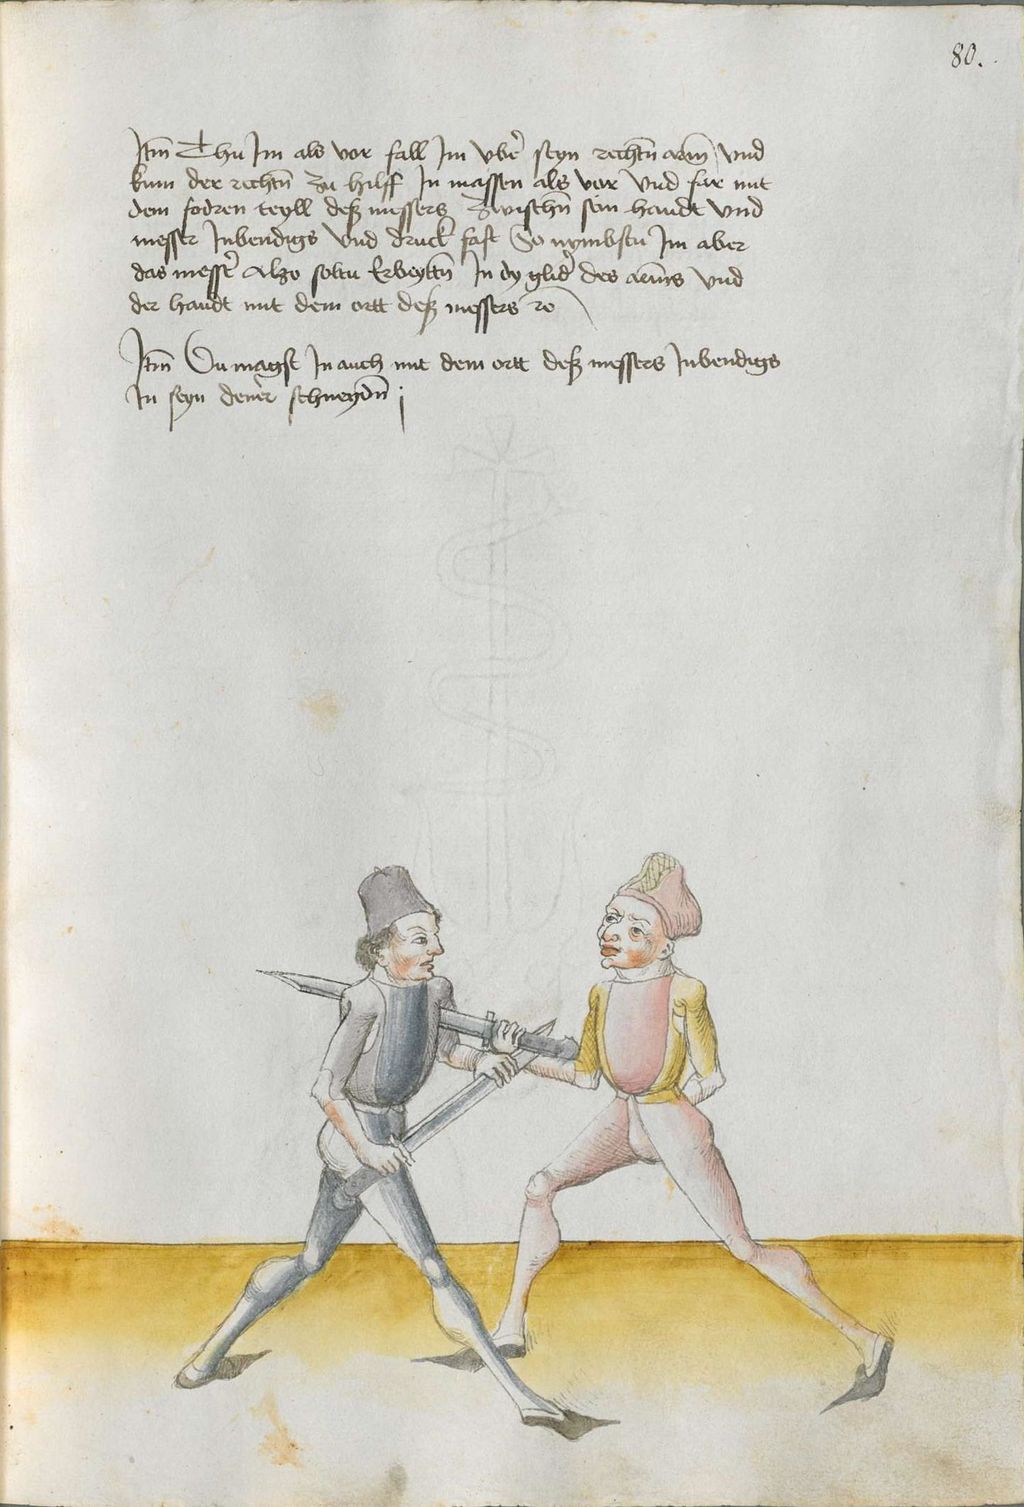 80.
Itm Thu Im als vor fall Im vbe᷑ seyn rechtn̄ arm̄ vnd
kum der rechtn̄ zu hilff In massen als vor vnd far mit
dem fodren teyll deß messers zwischn̄ sein handt vnd
messer Inbendigs vnd druck fast So nymbstu Im aber
das messe᷑ Alzo soltu Erbeyttn̄ In dy glid᷑ des arm̄s vnd
der handt mit dem ortt deß messers
Itm̄ Du magst In auch mit dem ortt deß messers Inbendigs
In seyn schneydn̄